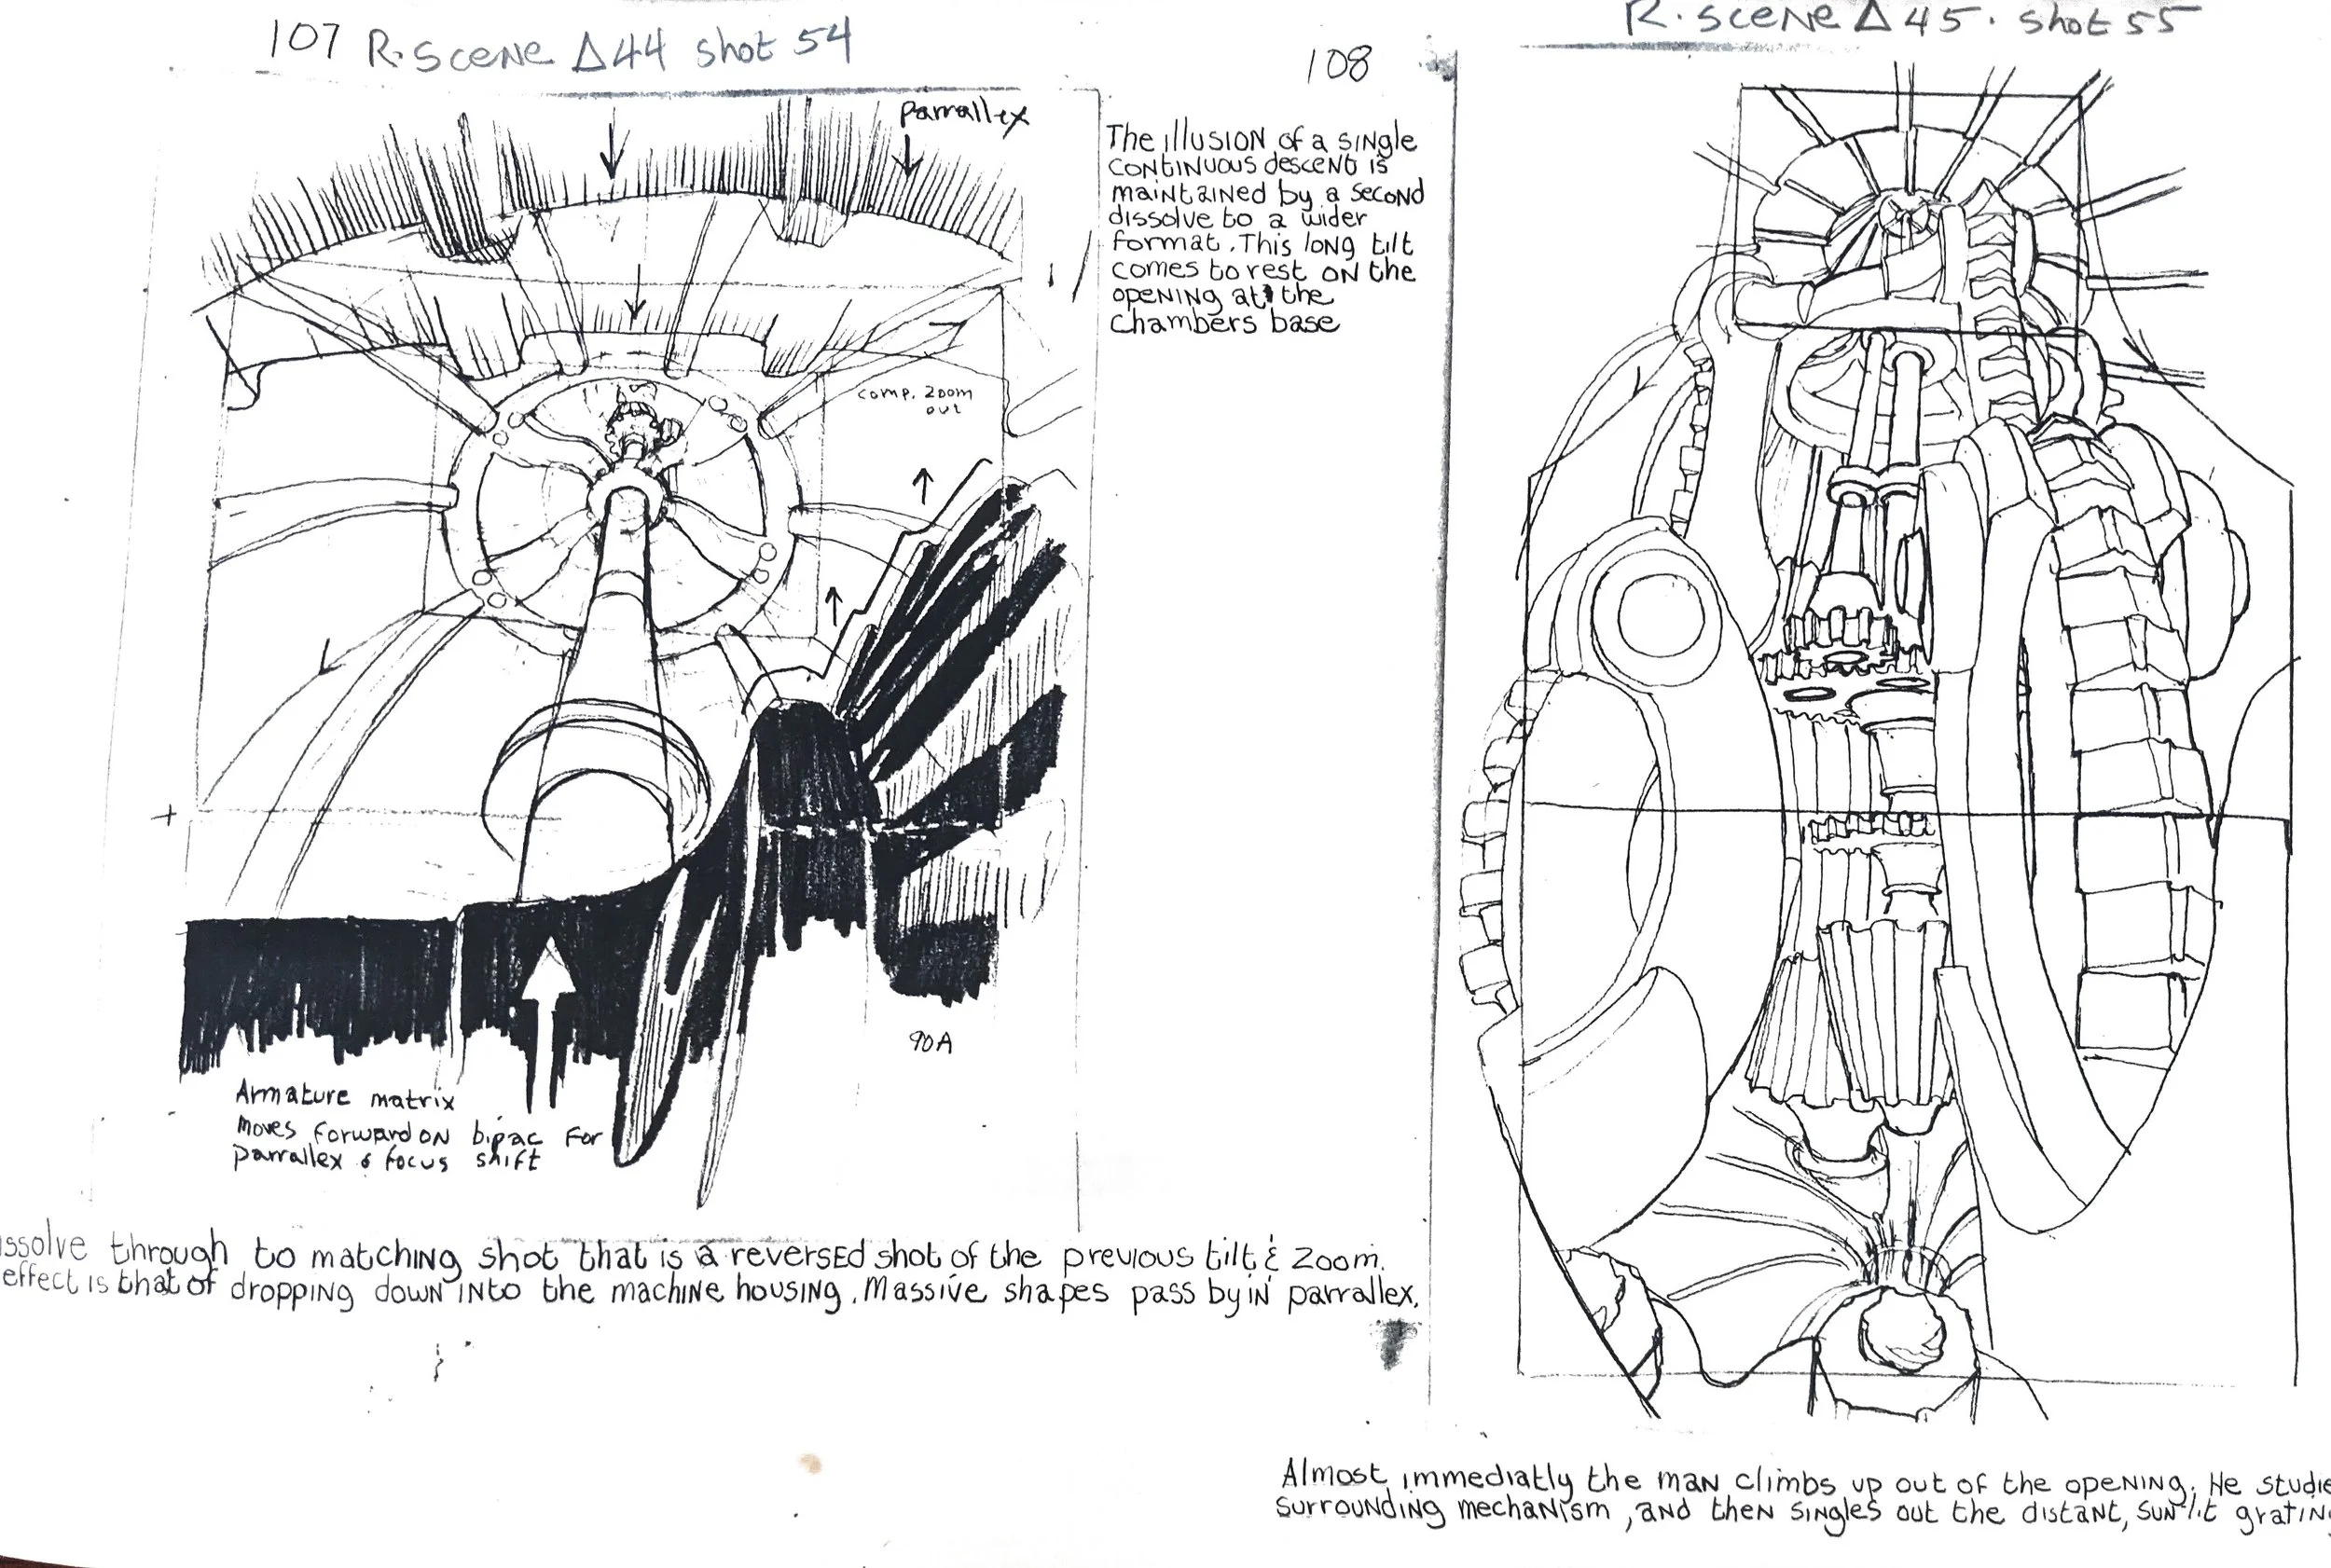 107 R. scene Δ44 shot 54
parrallex
comp. zoom
out
90A
Armature matrix
moves forward on bipac for
parrallex & focus shift
issolve through to matching shot that is a reversed shot of the previous tilt & zoom.
effect is that of dropping down into the machine housing. Massive shapes pass by in parrallex.
108
The illusion of a single
continuous descent is
maintained by a second
dissolve to a wider
format. This long tilt
comes to rest on the
opening at the
chambers base
R. scene Δ 45. shot 55
Almost immediatly the man climbs up out of the opening. He studie
surrounding mechanism, and then singles out the distant, sun-lit grating